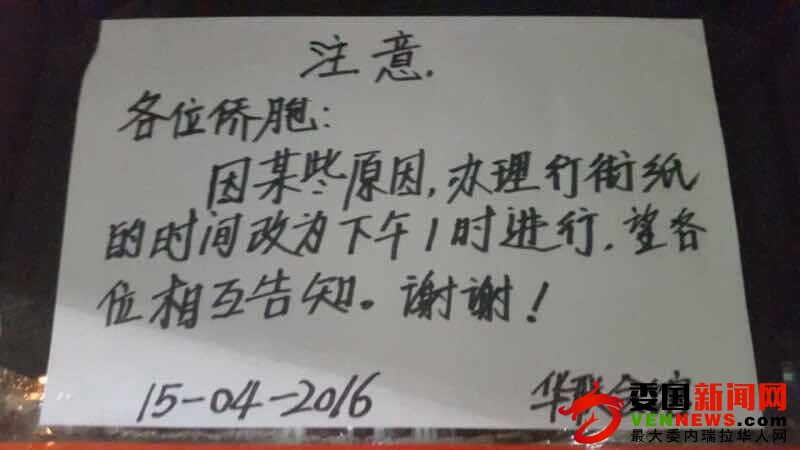 注意.
各位侨胞:
因某些原因,办理行街纸
的时间改为下午1时进行.望各
位相互告知。谢谢!
15-04-2016
华联会
委国新闻网
VENNEWS.com
最大委内瑞拉华人网